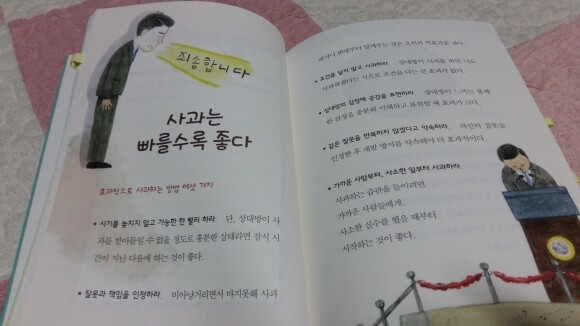 죄송합니다
사과는
빠를수록 좋다
효과적으로 사과하는 방법 여섯 가지
• 시기를 놓치지 말고 가능한 한 빨리 하라. 단, 상대방이 사
과를 받아들일 수 없을 정도로 흥분한 상태라면 잠시 시
간이 지난 다음에 하는 것이 좋다.
• 잘못과 책임을 인정하라. 비아냥거리면서 마지못해 사과
하거나 변명부터 늘어놓는 것은 오히려 역효과를 낸다.
• 조건을 달지 말고 사과하라. 상대방이 사과를 하면 나도
사과하겠다는 식으로 조건을 다는 건 효과가 없다.
• 상대방의 감정에 공감을 표현하라. 상대방이 느끼는 불쾌
한 감정을 충분히 이해하고 표현할 때 효과가 크다.
• 같은 잘못을 반복하지 않겠다고 약속하라. 자신의 잘못을
인정한 후 재발 방지를 약속해야 더 효과적이다.
• 가까운 사람부터, 사소한 일부터 사과하라.
사과하는 습관을 들이려면
가까운 사람들에게,
사소한 실수를 했을 때부터
시작하는 것이 좋다.